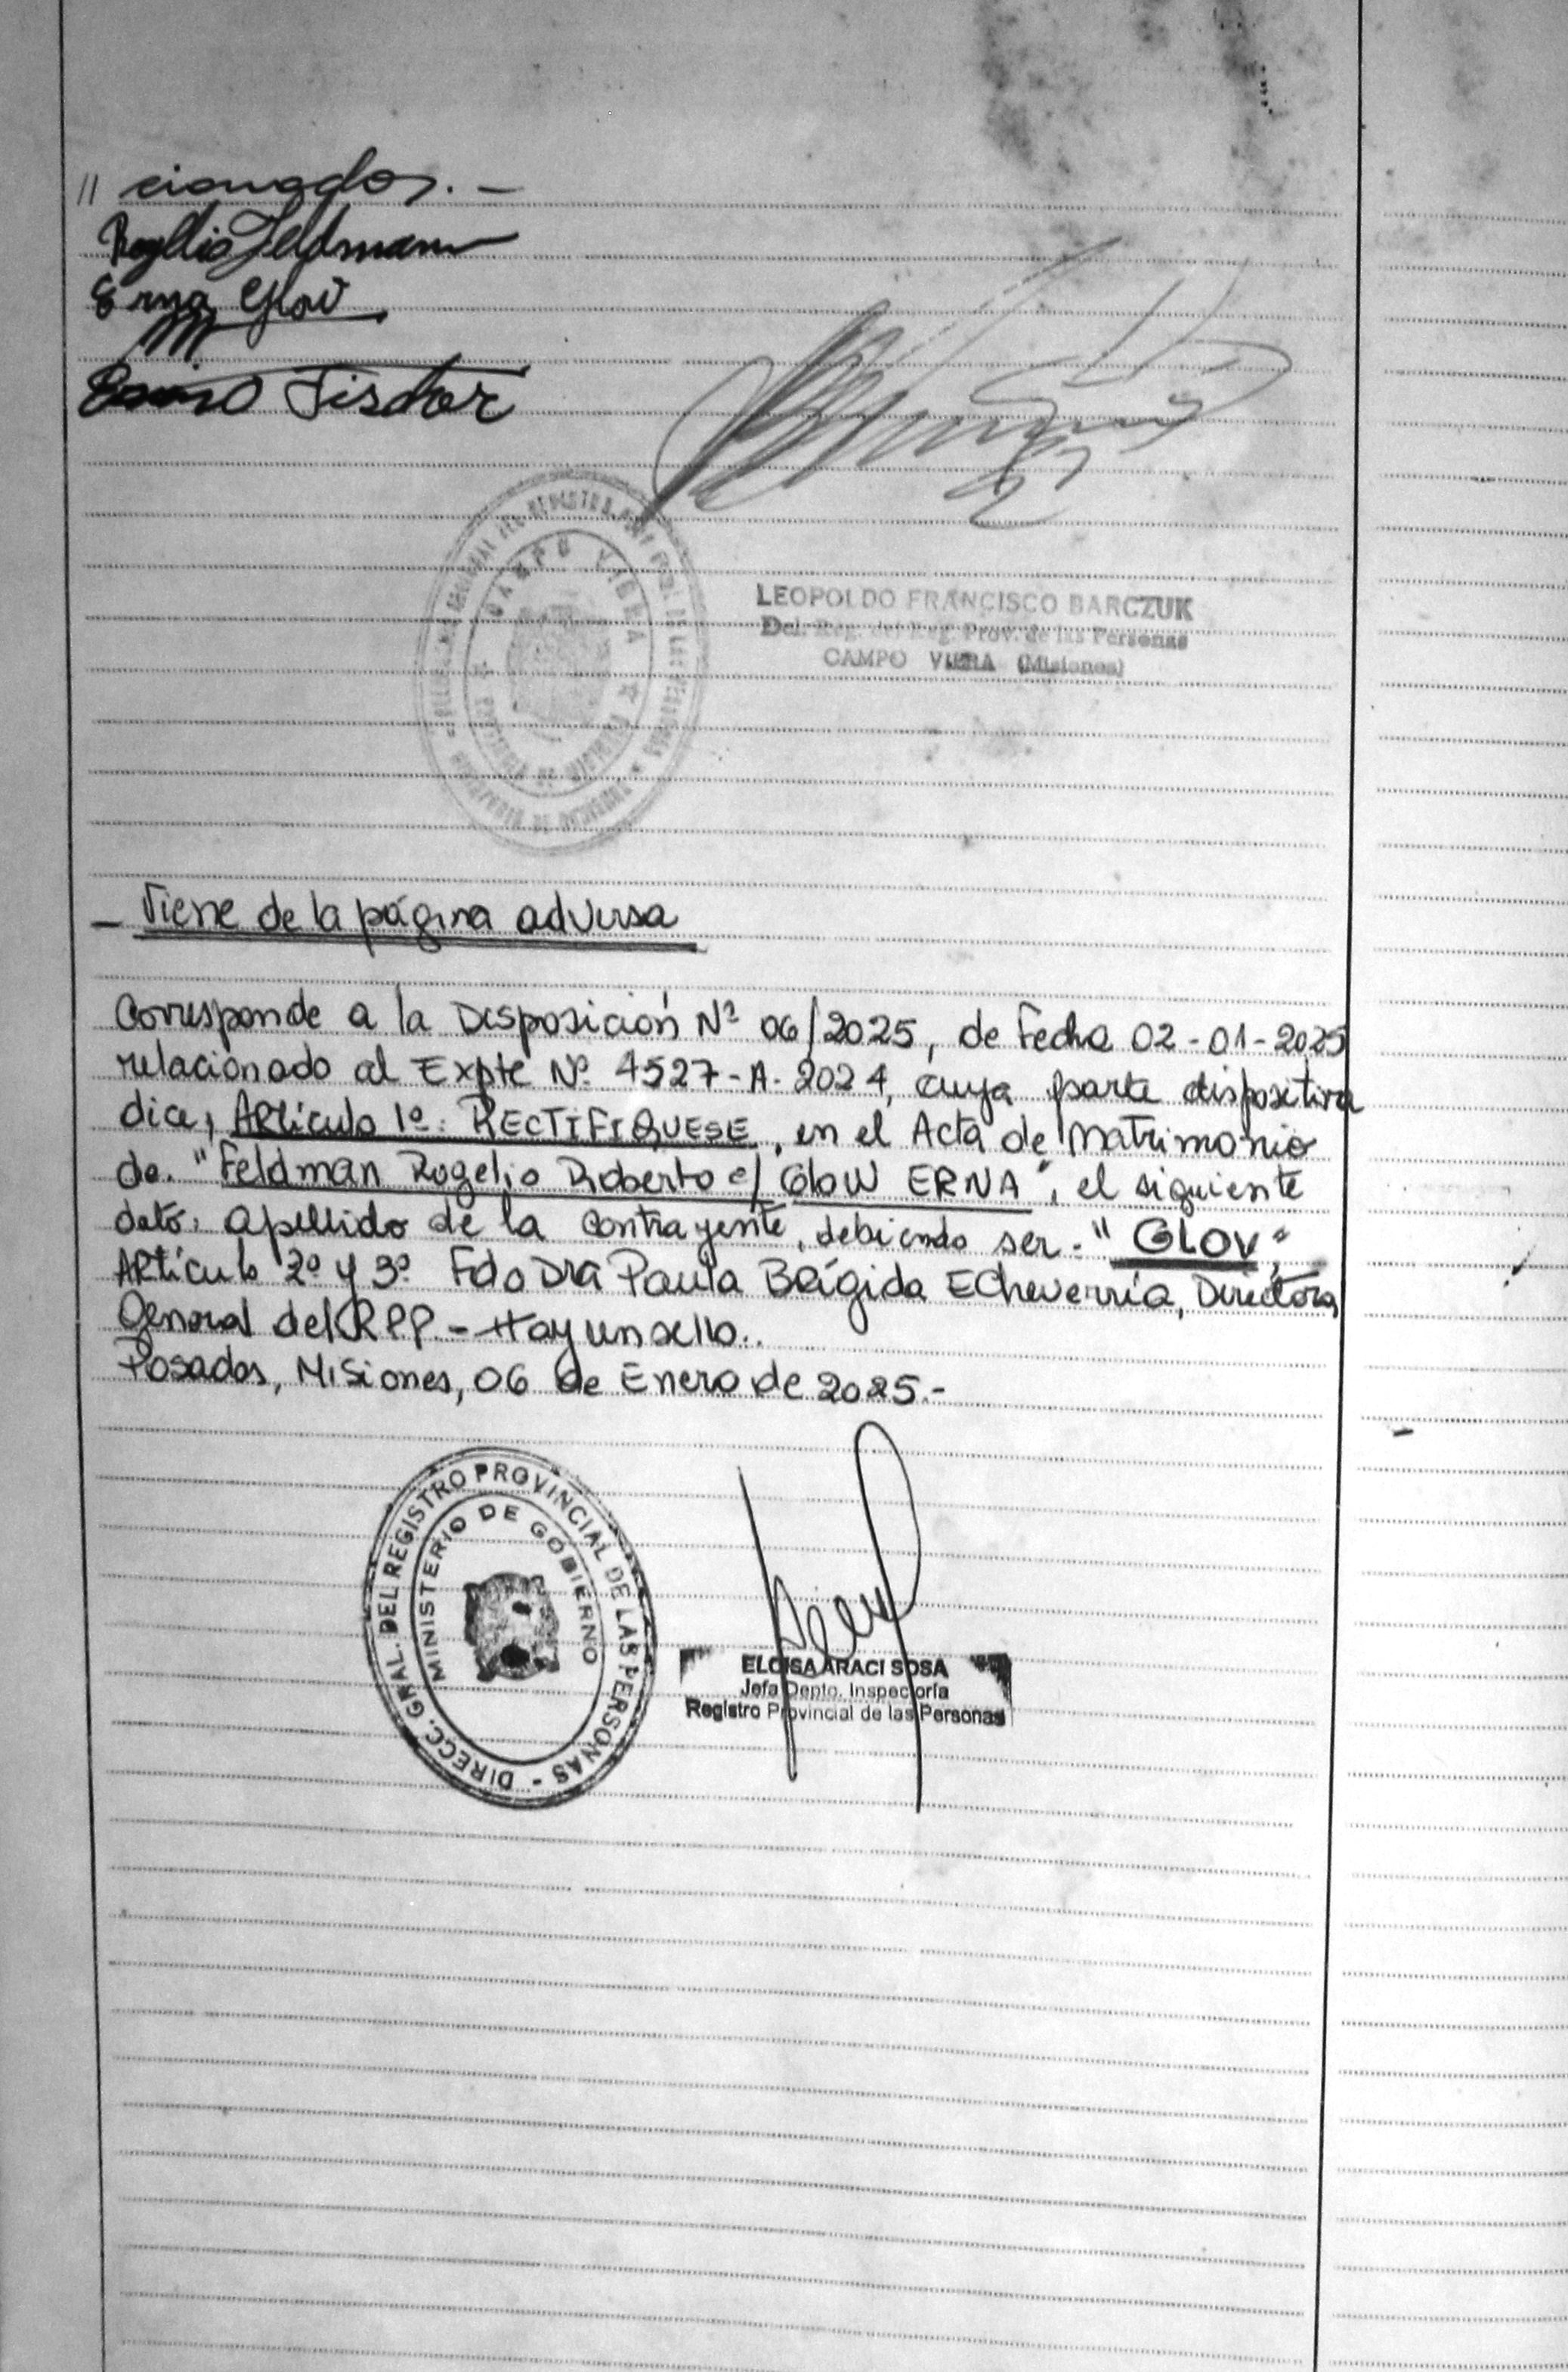 // cionados.-
Rogelio Feldmann
Erna Glov
Fischer
CAMPO VIERA
LEOPOLDO FRANCISCO BARCZUK
Del. Reg. del Reg. Prov. de las Personas
CAMPO VIERA (Misiones)
- Viene de la página adversa
Corresponde a la Disposición Nº 06/2025, de Fecha 02-01-2025
relacionado al Expte Nº 4527-A-2024, cuya parte dispositiva
dice, Artículo 1º: RECTIFIQUESE, en el Acta de Matrimonio
de. "Feldman Rogelio Roberto c/ Glow ERNA", el siguiente
dato: apellido de la contrayente, debiendo ser-"GLOV",
Artículo 2º y 3º Fdo Dra Paula Brígida Echeverría, Directora
General del RPP - Hay un sello..
Posadas, Misiones, 06 de Enero de 2025.-
DIRECC. GRAL. DEL REGISTRO PROVINCIAL DE LAS PERSONAS -
MINISTERIO DE GOBIERNO
ELOISA ARACI SOSA
Jefa Depto. Inspectoría
Registro Provincial de las Personas